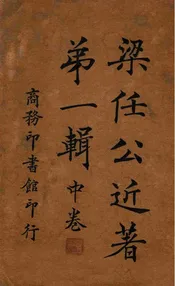 梁任公近著
第一輯中卷
商務印書館印行